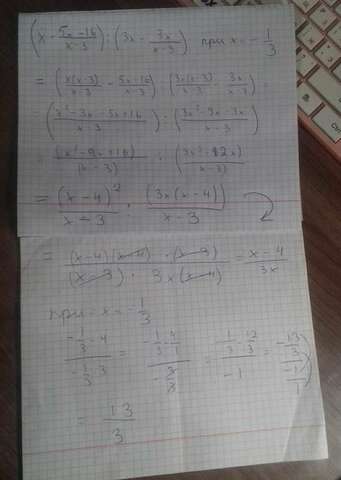 (x - \frac{5x-16}{x-3}) : (3x - \frac{3x}{x-3}) при x = -\frac{1}{3}
= (\frac{x(x-3)}{x-3} - \frac{5x+16}{x-3}) : (\frac{3x(x-3)}{x-3} - \frac{3x}{x-3})
= (\frac{x²-3x-5x+16}{x-3}) : (\frac{3x²-9x-3x}{x-3})
= \frac{(x²-8x+16)}{(x-3)} : (\frac{3x²-12x}{x-3})
= \frac{(x-4)²}{x-3} : \frac{(3x(x-4))}{x-3}
= \frac{(x-4)(x-4) · (x-3)}{(x-3) · 3x(x-4)} = \frac{x-4}{3x}
при x = -\frac{1}{3}
\frac{-\frac{1}{3}-4}{-\frac{1}{3}·3} = \frac{-\frac{1}{3}-\frac{4}{1}}{-\frac{3}{3}} = \frac{-\frac{1}{3}-\frac{12}{3}}{-1} = \frac{-\frac{13}{3}}{-\frac{1}{1}}
= \frac{13}{3}